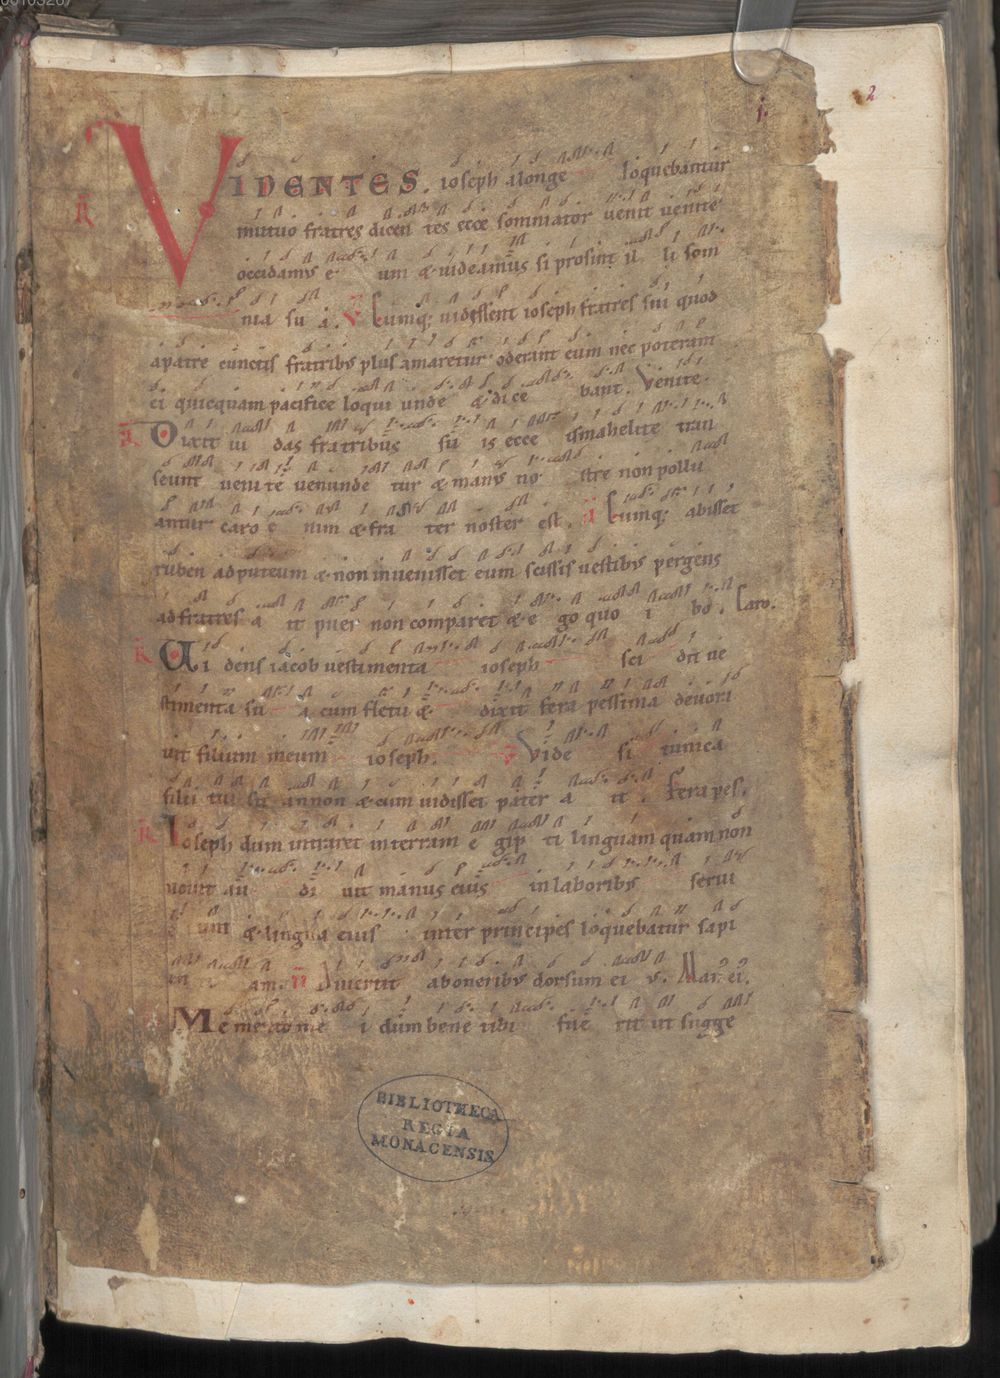 2
j.
VIDENTES. ioseph alonge loquebantur
mutuo fratres dicen tes ecce somniator uenit uenite
occidamus e um & uideamus si prosint il li som
nia su a. V Cumq; uidissent ioseph fratres sui quod
apatre cunctis fratribus plus amaretur oderant eum nec poterant
ei quicquam pacifice loqui unde & dice bant. Venite.
R Dixit iu das fratribus su is ecce ismahelite tran
seunt uenite uenunde tur & manus no stre non pollu
antur caro e nim & fra ter noster est. V Cumq; abisset
ruben ad puteum & non inuenisset eum scissis uestibus pergens
ad fratres a it puer non comparet & e go quo i bo. Caro.
R Vi dens iacob uestimenta ioseph sci dit ue
stimenta su a cum fletu & dixit fera pessima deuora
uit filium meum ioseph. V Vide si tunica
filii tui sit an non & cum uidisset pater a it. Fera pes.
R Ioseph dum intraret in terram e gip ti linguam quam non
nouit au di uit manus eius in laboribus serui
erunt & lingua eius inter principes loquebatur sapi
en ti am. V Diuertit ab oneribus dorsum ei us. Man. ei.
Memento me i dum bene tibi fue rit ut sugge
BIBLIOTHECA
REGIA
MONACENSIS